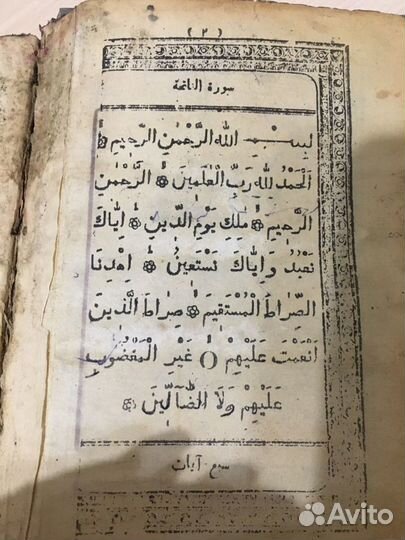 ( ٢ )
سورة الفاتحة
بِسْــمِ اللهِ الرَّحْمٰنِ الرَّحِيمِ
اَلْحَمْدُ لِلهِ رَبِّ الْعٰلَمِينَ ۞ الرَّحْمٰنِ
الرَّحِيمِ ۞ مٰلِكِ يَوْمِ الدِّينِ ۞ اِيَّاكَ
نَعْبُدُ وَاِيَّاكَ نَسْتَعِينُ ۞ اِهْدِنَا
الصِّرَاطَ الْمُسْتَقِيمَ ۞ صِرَاطَ الَّذِينَ
اَنْعَمْتَ عَلَيْهِمْ ۞ غَيْرِ الْمَغْضُوبِ
عَلَيْهِمْ وَلَا الضَّالِّينَ ۞
سبع آيات
Avito